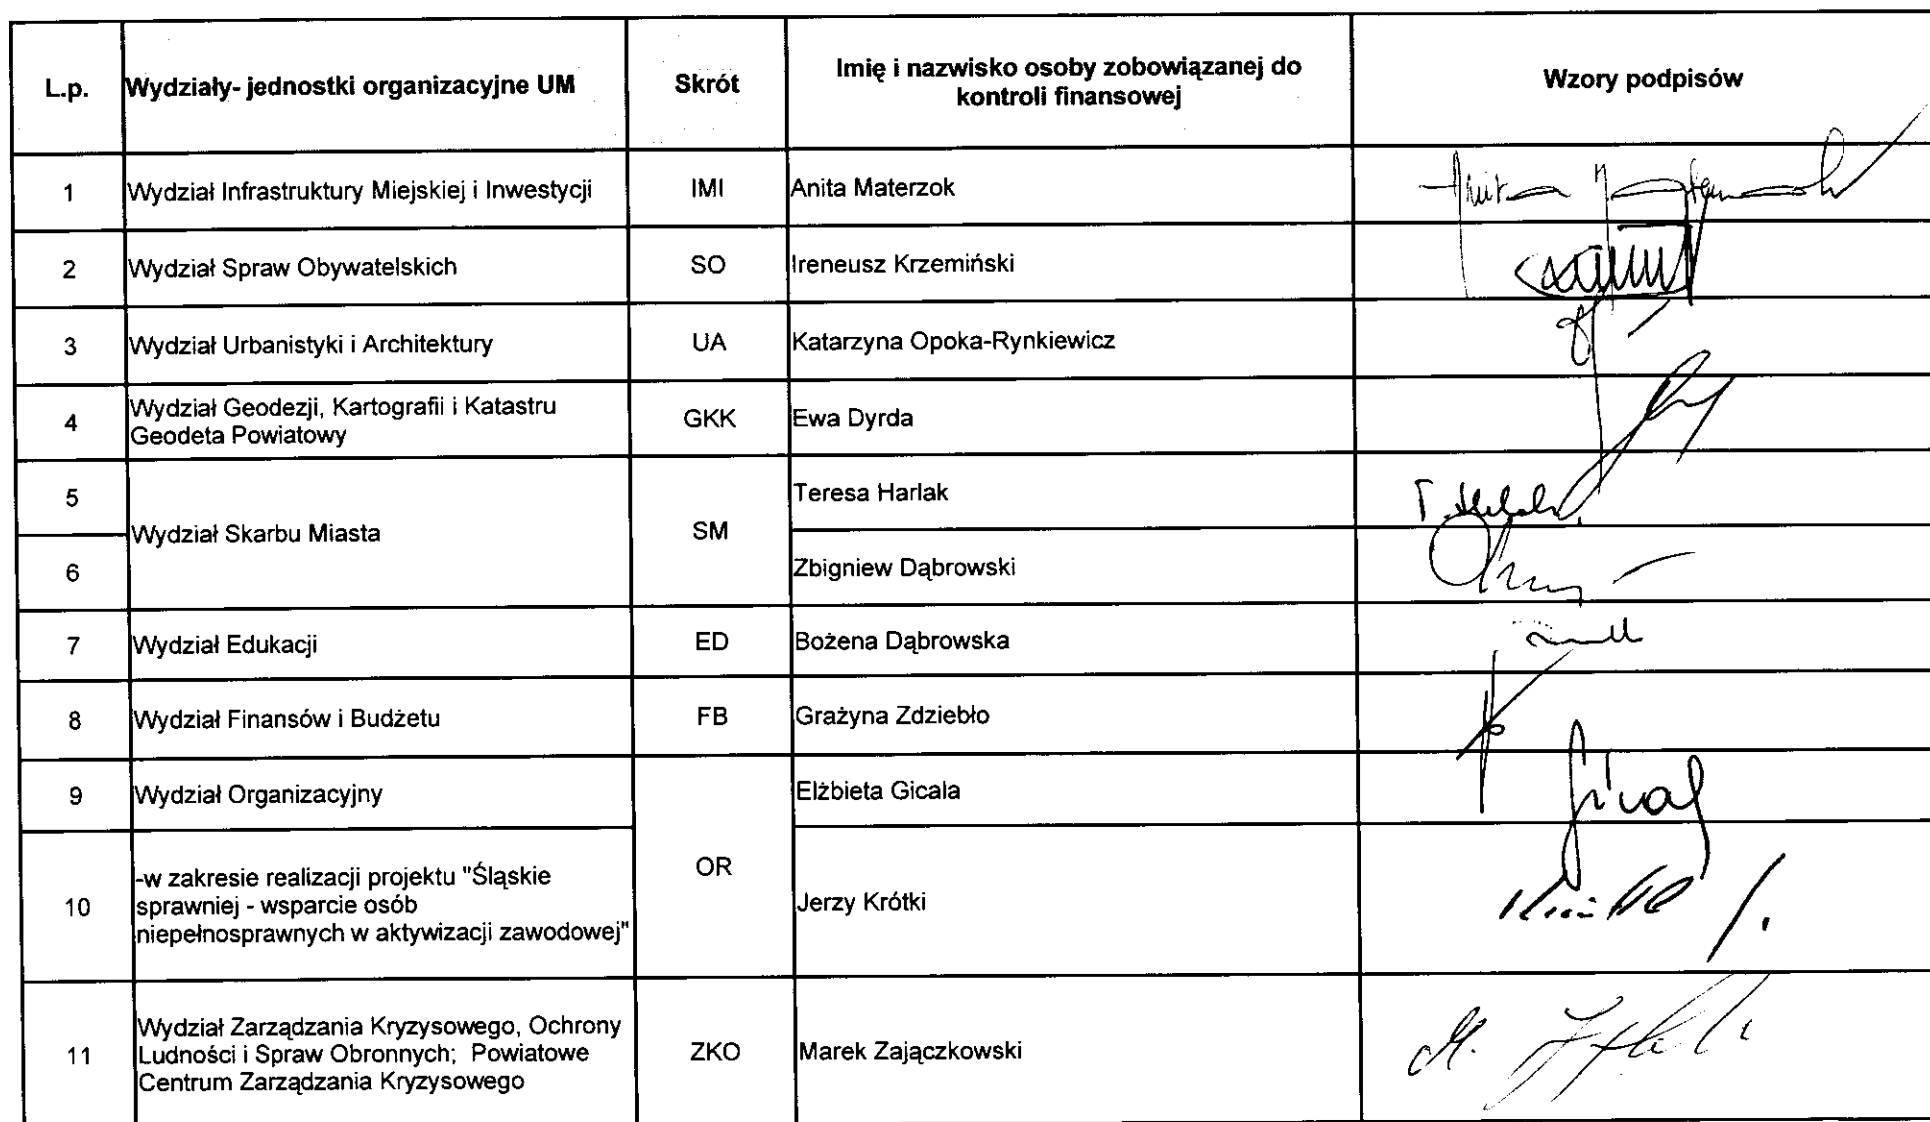 L.p. Wydziały- jednostki organizacyjne UM Skrót Imię i nazwisko osoby zobowiązanej do
kontroli finansowej Wzory podpisów
1 Wydział Infrastruktury Miejskiej i Inwestycji IMI Anita Materzok
2 Wydział Spraw Obywatelskich SO Ireneusz Krzemiński
3 Wydział Urbanistyki i Architektury UA Katarzyna Opoka-Rynkiewicz
4 Wydział Geodezji, Kartografii i Katastru
Geodeta Powiatowy GKK Ewa Dyrda
5 Wydział Skarbu Miasta SM Teresa Harlak
6 Zbigniew Dąbrowski
7 Wydział Edukacji ED Bożena Dąbrowska
8 Wydział Finansów i Budżetu FB Grażyna Zdziebło
9 Wydział Organizacyjny OR Elżbieta Gicala
10 -w zakresie realizacji projektu "Śląskie
sprawniej - wsparcie osób
niepełnosprawnych w aktywizacji zawodowej" Jerzy Krótki
11 Wydział Zarządzania Kryzysowego, Ochrony
Ludności i Spraw Obronnych; Powiatowe
Centrum Zarządzania Kryzysowego ZKO Marek Zajączkowski